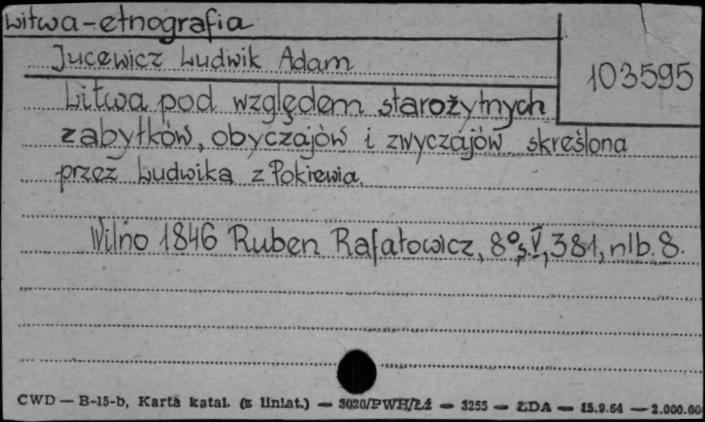 Litwa-etnografia
Jucewicz Ludwik Adam
103595
Litwa pod względem starożytnych
zabytków, obyczajów i zwyczajów skreślona
przez Ludwika z Pokiewia.
Wilno 1846 Ruben Rafałowicz, 8°, s. V, 381, nlb. 8.
CWD — B-15-b, Karta katal. (z liniat.) — 3020/PWH/Łź — 3255 — ŁDA — 15.9.64 — 2.000.00